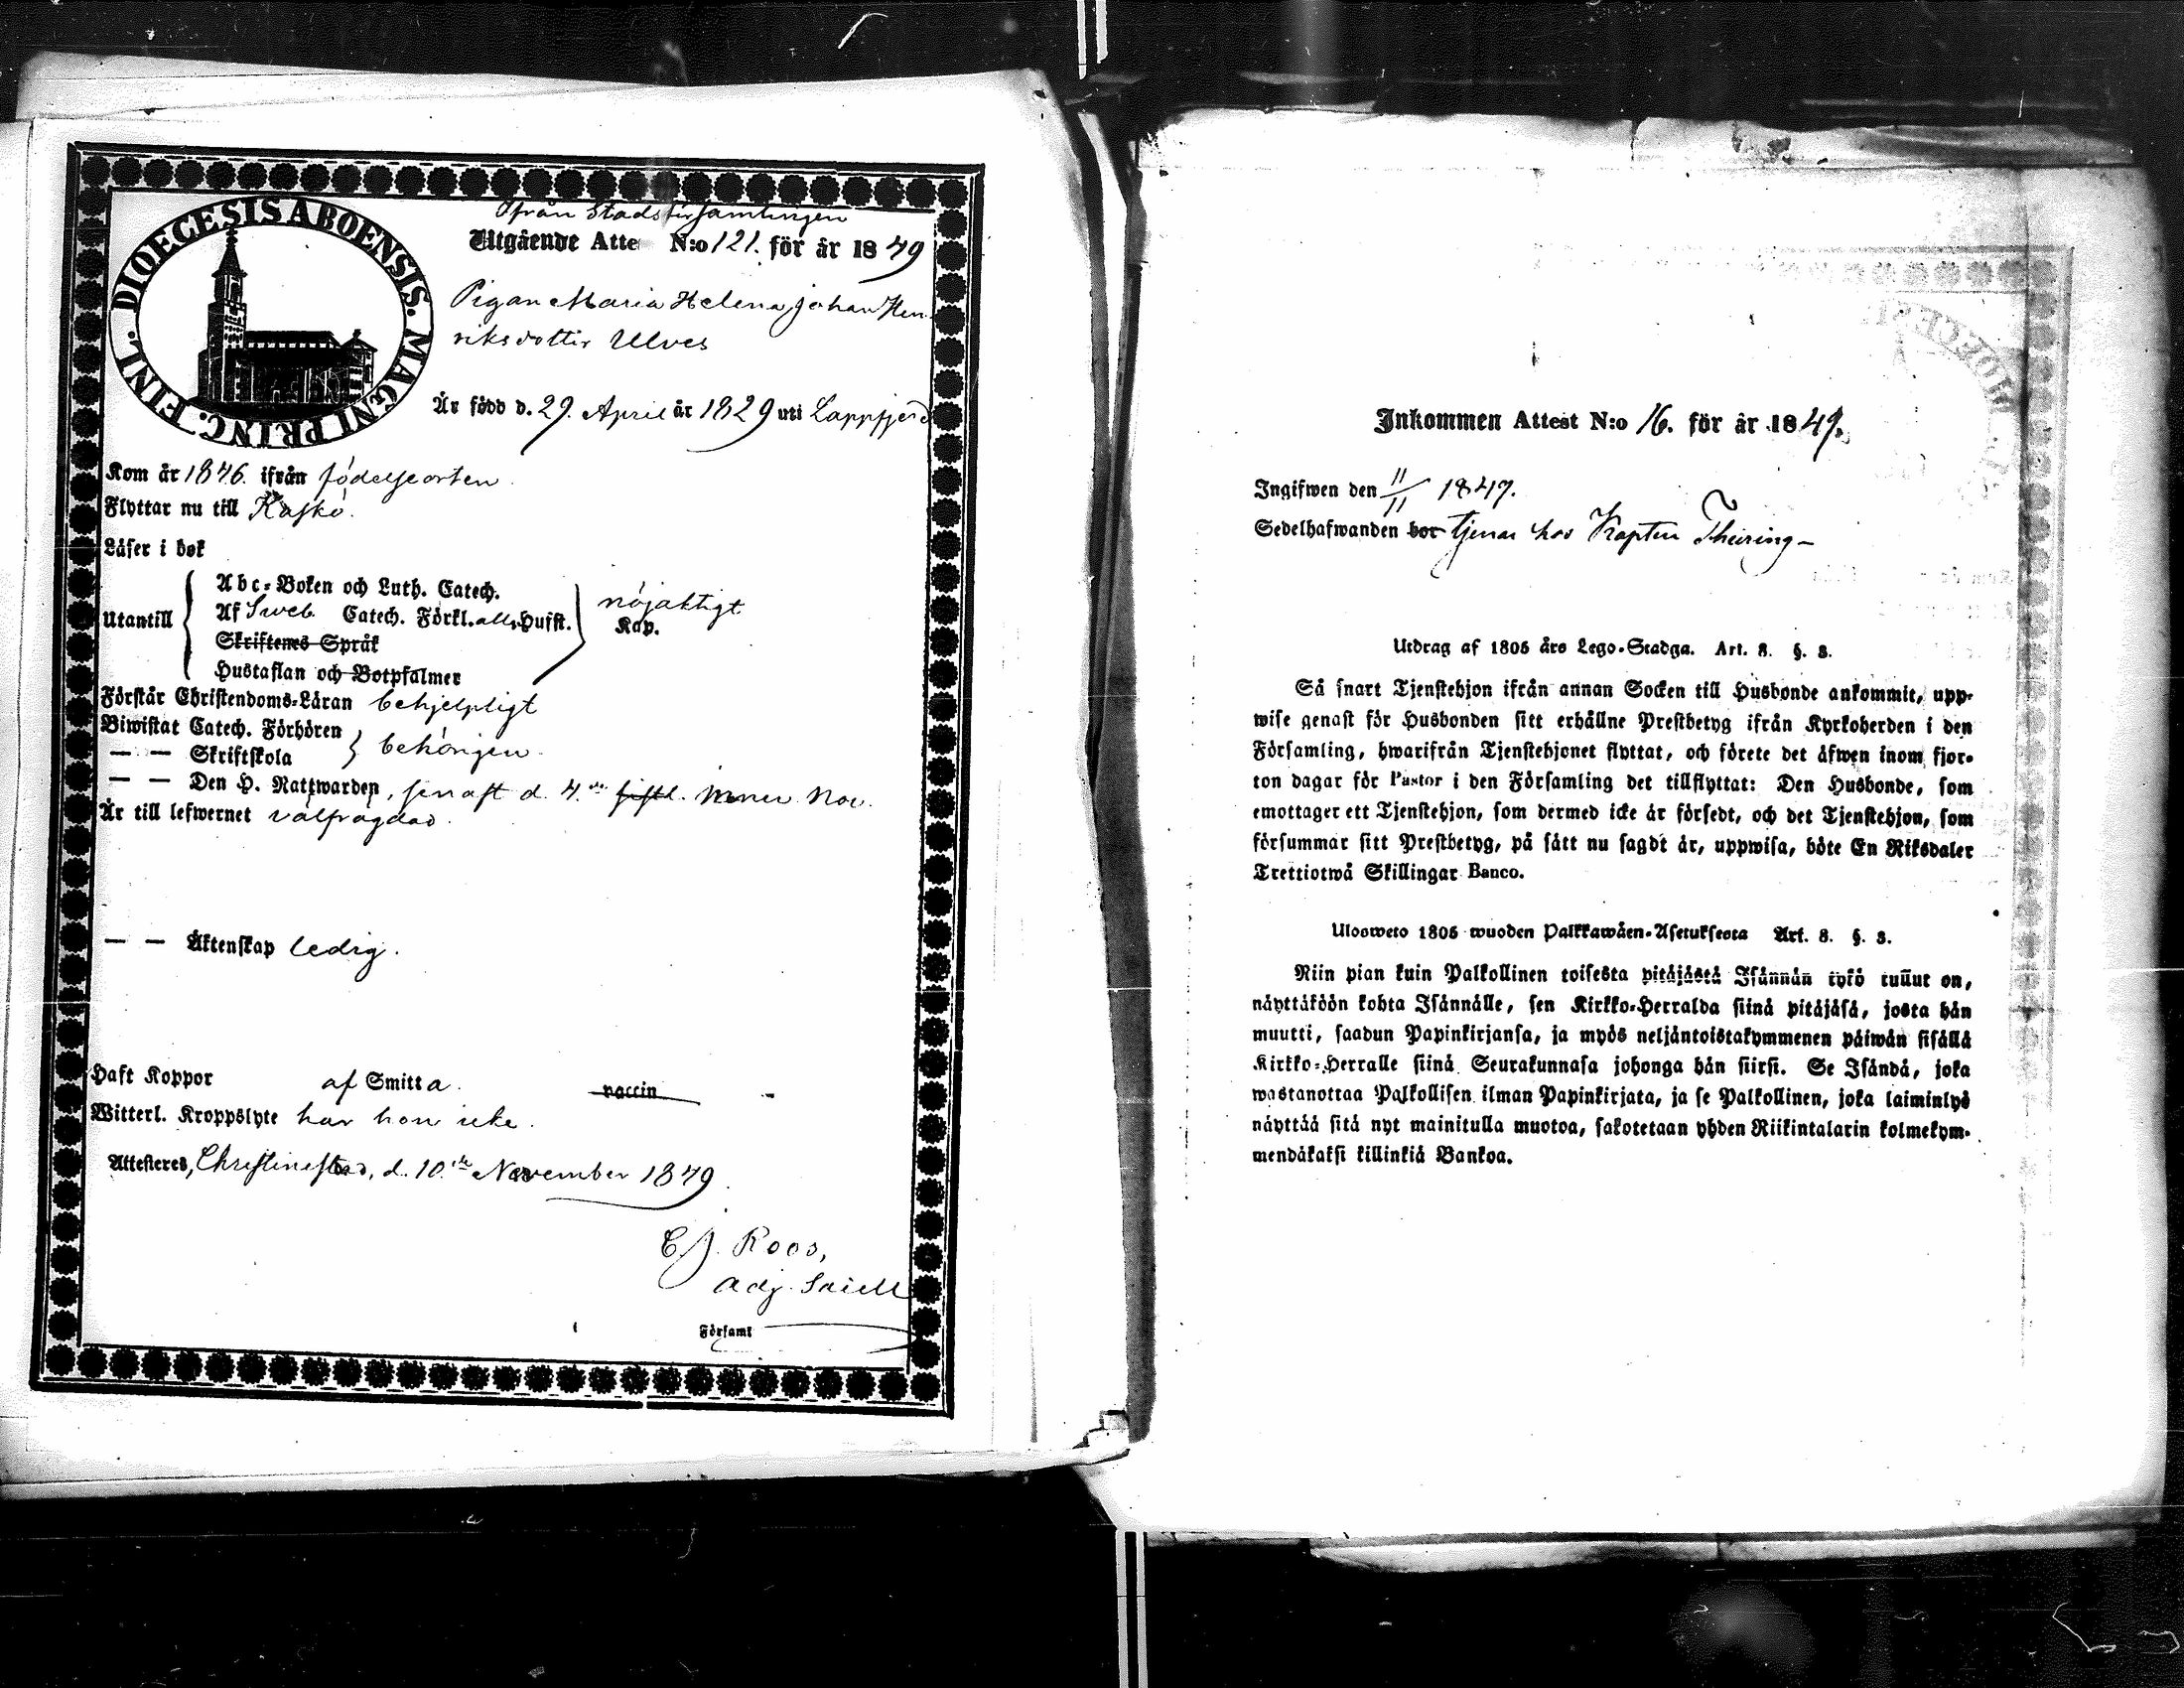 DIOECESIS ABOENSIS. MAGNI PRINC. FINL.
Från Stadsförsamlingen
Utgående Atte N:o 121. för år 1849
Pigan Maria Helena Johan Hen
riksdotter Ulves
Är född d. 29. April år 1829 uti Lappfjerd
Kom år 1846. ifrån födelseorten.
Flyttar nu till Kaskö.
Läser i bok
Utantill
Abc-Boken och Luth. Catech.
Af Sweb. Catech. Förkl. alla Hufst.
nöjaktigt
Kap.
Skriftenes Språk
Hustaflan och Botpsalmer
Förstår Christendoms-Läran behjelpligt
Biwistat Catech. Förhören
— — Skriftskola
behörigen.
— — Den H. Nattwarden, senast d. 4. Nov.
Är till lefwernet välfrägdad.
— — Äktenskap ledig.
Haft Koppor af Smitta. vaccin
Witterl. Kroppslyte har hon icke.
Attesteras, Christinestad, d. 10. de November 1849
C. J. Roos,
Adj.
Församl
Inkommen Attest N:o 16. för år 1849.
Ingifwen den 11/11 1849.
Sedelhafwanden bor tjenar hos Kapten Thuring
Utdrag af 1805 års Lego-Stadga. Art. 8. §. 3.
Så snart Tjenstehjon ifrån annan Socken till Husbonde ankommit, upp-
wise genast för Husbonden sitt erhållne Prestbetyg ifrån Kyrkoherden i den
Församling, hwarifrån Tjenstehjonet flyttat, och förete det äfwen inom fjor-
ton dagar för Pastor i den Församling det tillflyttat: Den Husbonde, som
emottager ett Tjenstehjon, som dermed icke är försedt, och det Tjenstehjon, som
försummar sitt Prestbetyg, på sätt nu sagdt är, uppwisa, böte En Riksdaler
Trettiotwå Skillingar Banco.
Ulosweto 1805 wuoden Palkkawäen-Asetuksesta Art. 8. §. 3.
Niin pian kuin Palkollinen toisesta pitäjästä Isännän tykö tullut on,
näyttäköön kohta Isännälle, sen Kirkko-Herralda siinä pitäjäsä, josta hän
muutti, saadun Papinkirjansa, ja myös neljäntoistakymmenen päiwän sisällä
Kirkko-Herralle siinä Seurakunnasa johonga hän siirsi. Se Isändä, joka
wastanottaa Palkollisen ilman Papinkirjata, ja se Palkollinen, joka laiminlyö
näyttää sitä nyt mainitulla muotoa, sakotetaan yhden Riikintalarin kolmekym-
mendäkaksi killinkiä Bankoa.